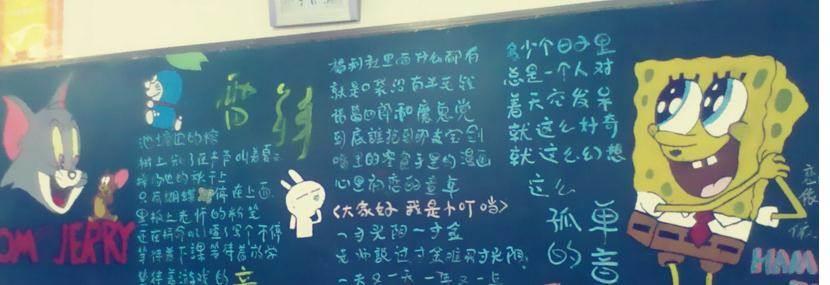 TOM JERRY
池塘边的榕
树上知了在声声叫着夏
操场边的秋千上
只有蝴蝶停在上面
黑板上老师的粉笔
还在拼命叽喳写个不停
等待着下课等待着放学
等待着游戏的
福利社里面什么都有
就是口袋没有半毛钱
诸葛四郎和魔鬼党
到底誰抢到那支宝剑
嘴里的零食手里的漫画
心里初恋的童年
<大家好 我是小叮噹>
一寸光阴一寸金
老师说过寸金难买寸光阴
一天又一天一年又一年
多少个日子里
总是一个人对
着天空发呆
就这么好奇
就这么幻想
这么
孤单
的